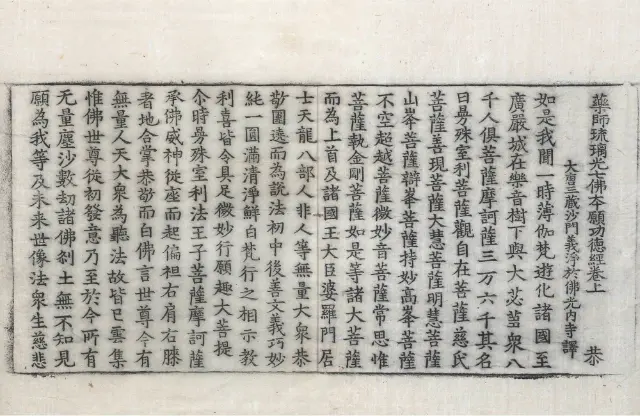 藥師琉璃光七佛本願功德經卷上 恭
大唐三藏沙門義淨於佛光內寺譯
如是我聞一時薄伽梵遊化諸國至
廣嚴城在樂音樹下與大苾芻衆八
千人俱菩薩摩訶薩三万六千其名
曰曼殊室利菩薩觀自在菩薩慈氏
菩薩善現菩薩大慧菩薩明慧菩薩
山峯菩薩辯峯菩薩持妙高峯菩薩
不空超越菩薩微妙音菩薩常思惟
菩薩執金剛菩薩如是等諸大菩薩
而為上首及諸國王大臣婆羅門居
士天龍八部人非人等無量大衆恭
敬圍遶而為說法初中後善文義巧妙
純一圓滿清淨鮮白梵行之相示教
利喜皆令具足微妙行願趣大菩提
尒時曼殊室利法王子菩薩摩訶薩
承佛威神從座而起偏袒右肩右膝
者地合掌恭敬而白佛言世尊今有
無量人天大衆為聽法故皆已雲集
惟佛世尊從初發意乃至於今所有
无量塵沙數劫諸佛刹土無不知見
願為我等及未來世像法衆生慈悲